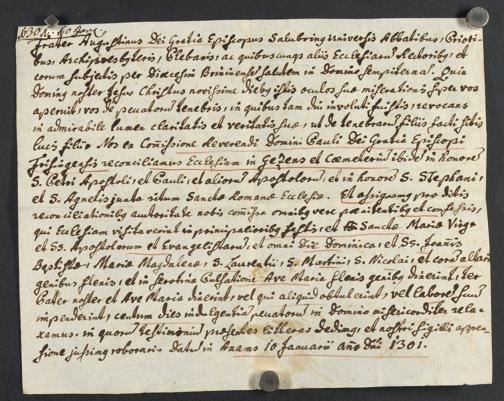 1301. 10 Janu.
Frater Augustinus Dei Gratia Episcopus Salubring universis Abbatibus, Priori-
bus, Archipresbyteris, Plebanis, ac quibuscunqs aliis Ecclesiarũ Rectoribq, et
eorum subjectis per Diœcesim Brixinensẽ salutem in Domino sempiternã. Quia
Dominq noster Jesus Christus novissime diebq istis oculos suæ miserationis super vos
aperuit, vos de peccatorũ tenebris, in quibus tam diu involuti fuistis, revocans
in admirabile lumen claritatis et veritatis suæ, ut de tenebrarũ filiis facti sitis
lucis filii. Nos ex Comissione Reverendi Domini Pauli Dei Gratia Episcopi
reconciliamus Ecclesiam in et Cœmeteriũ ibidẽ in honorẽ
S. Petri Apostoli, et Pauli, et aliorũ Apostolorũ, et in honorẽ S. Stephani,
et S. Agnetis juxta situm Sanctæ Romanæ Ecclesiæ. Et assignamq pro ditis
reconciliationibq autoritate nobis comissa omnibq vere pœnitentibq et confessis,
qui Ecclesiam visitaverint in principalioribq festis, et Sanctæ Mariæ Virgs
et SS. Apostolorum et Evangelistarũ, et omni Die Dominica, et SS. Joannis
Baptistæ, Mariæ Magdalenæ, S. Laurentii, S. Martini, S. Nicolai, et corã altari
genibus flexis, et in serotina Pulsatione Ave Maria flexis genibq dixerint, ter
Pater noster et Ave Maria dixerint, vel qui aliquid obtulerint, vel laborẽ suũ
impenderint, centum dies indulgentiæ peccatorũ in Domino misericorditer rela-
xamus. in quorũ testimonium præsentes litteras dedimq, et nostri sigilli appen-
sione jussimq roborari. Datũ in Anams 10 Januarii año Dñi 1301.